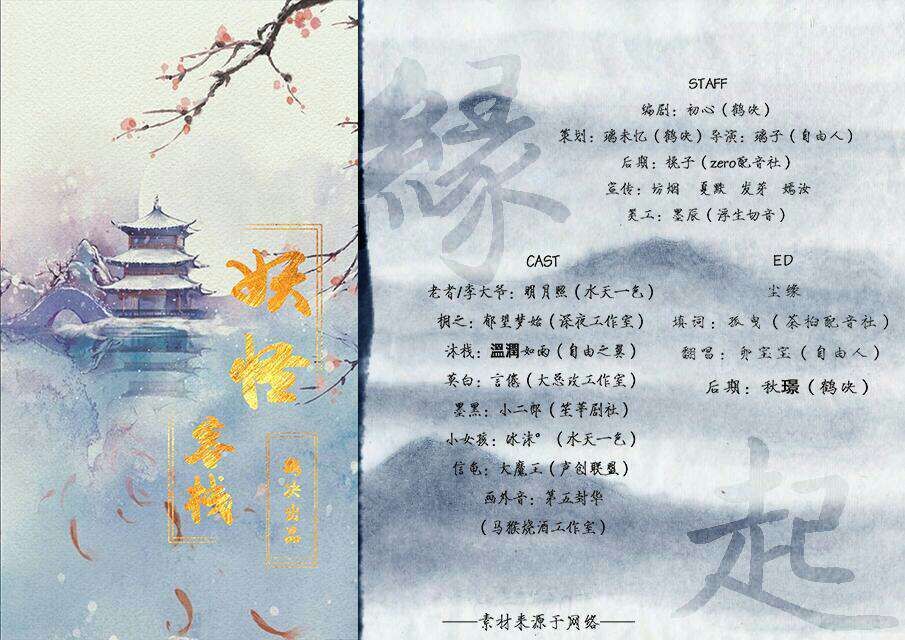 妖怪
客栈
鹤决出品
緣
起
STAFF
编剧：初心（鹤吷）
策划：璃未忆（鹤吷）导演：璃子（自由人）
后期：桃子（zero配音社）
宣传：坊烟 夏默 发芽 嫣汝
美工：墨辰（浮生切音）
CAST
老者/李大爷：明月照（水天一色）
桐之：郁望梦始（深夜工作室）
沐栈：溫潤如雨（自由之翼）
莫白：言倦（大总攻工作室）
墨黑：小二郎（笙箫剧社）
小女孩：冰沫°（水天一色）
信龟：大魔王（声创联盟）
画外音：第五封华
（马猴烧酒工作室）
ED
尘缘
填词：孤曳（茶柏配音社）
翻唱：卿宝宝（自由人）
后期：秋璟（鹤吷）
——素材来源于网络——